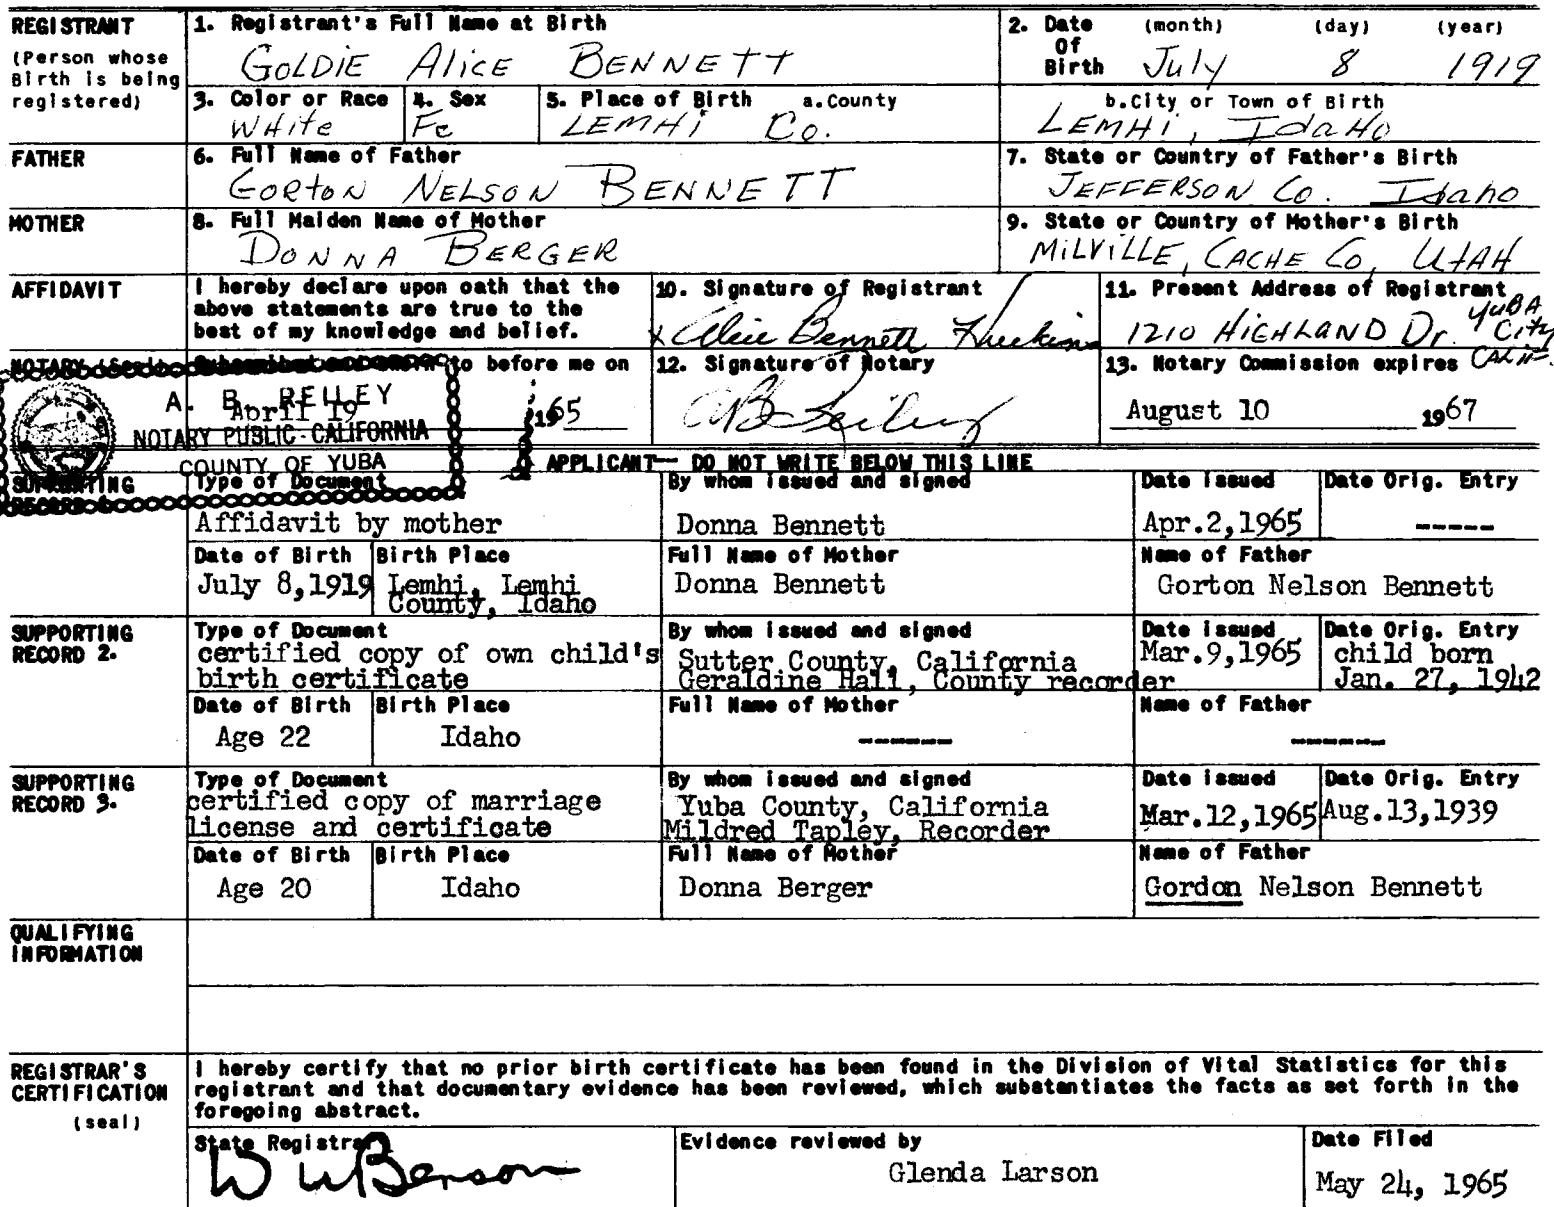 REGISTRANT
(Person whose
Birth is being
registered)
1. Registrant's Full Name at Birth
GOLDIE Alice BENNETT
2. Date Of Birth (month) (day) (year)
July 8 1919
3. Color or Race
White
4. Sex
Fe
5. Place of Birth a. County
LEMHi Co.
b. City or Town of Birth
LEMHi, IdaHo
FATHER
6. Full Name of Father
GORtoN NELSON BENNETT
7. State or Country of Father's Birth
JEFFERSON Co. Idaho
MOTHER
8. Full Maiden Name of Mother
DONNA BERGER
9. State or Country of Mother's Birth
MiLVILLE, CACHE Co, UtAH
AFFIDAVIT
I hereby declare upon oath that the
above statements are true to the
best of my knowledge and belief.
10. Signature of Registrant
x Alice Bennett
11. Present Address of Registrant
1210 HIGHLAND Dr. YUBA City CALIF.
to before me on
April 19 1965
A. B. REILEY
NOTARY PUBLIC - CALIFORNIA
COUNTY OF YUBA
12. Signature of Notary
AB Reiley
13. Notary Commission expires
August 10 1967
APPLICANT — DO NOT WRITE BELOW THIS LINE
SUPPORTING
Type of Document
Affidavit by mother
By whom issued and signed
Donna Bennett
Date issued
Apr.2,1965
Date Orig. Entry
-----
Date of Birth
July 8,1919
Birth Place
Lemhi, Lemhi
County, Idaho
Full Name of Mother
Donna Bennett
Name of Father
Gorton Nelson Bennett
SUPPORTING
RECORD 2.
Type of Document
certified copy of own child's
birth certificate
By whom issued and signed
Sutter County, California
Geraldine Hall, County recorder
Date issued
Mar.9,1965
Date Orig. Entry
child born
Jan. 27, 1942
Date of Birth
Age 22
Birth Place
Idaho
Full Name of Mother
------
Name of Father
------
SUPPORTING
RECORD 3.
Type of Document
certified copy of marriage
license and certificate
By whom issued and signed
Yuba County, California
Mildred Tapley, Recorder
Date issued
Mar.12,1965
Date Orig. Entry
Aug.13,1939
Date of Birth
Age 20
Birth Place
Idaho
Full Name of Mother
Donna Berger
Name of Father
Gordon Nelson Bennett
QUALIFYING
INFORMATION
REGISTRAR'S
CERTIFICATION
(seal)
I hereby certify that no prior birth certificate has been found in the Division of Vital Statistics for this
registrant and that documentary evidence has been reviewed, which substantiates the facts as set forth in the
foregoing abstract.
State Registrar
W W Benson
Evidence reviewed by
Glenda Larson
Date Filed
May 24, 1965